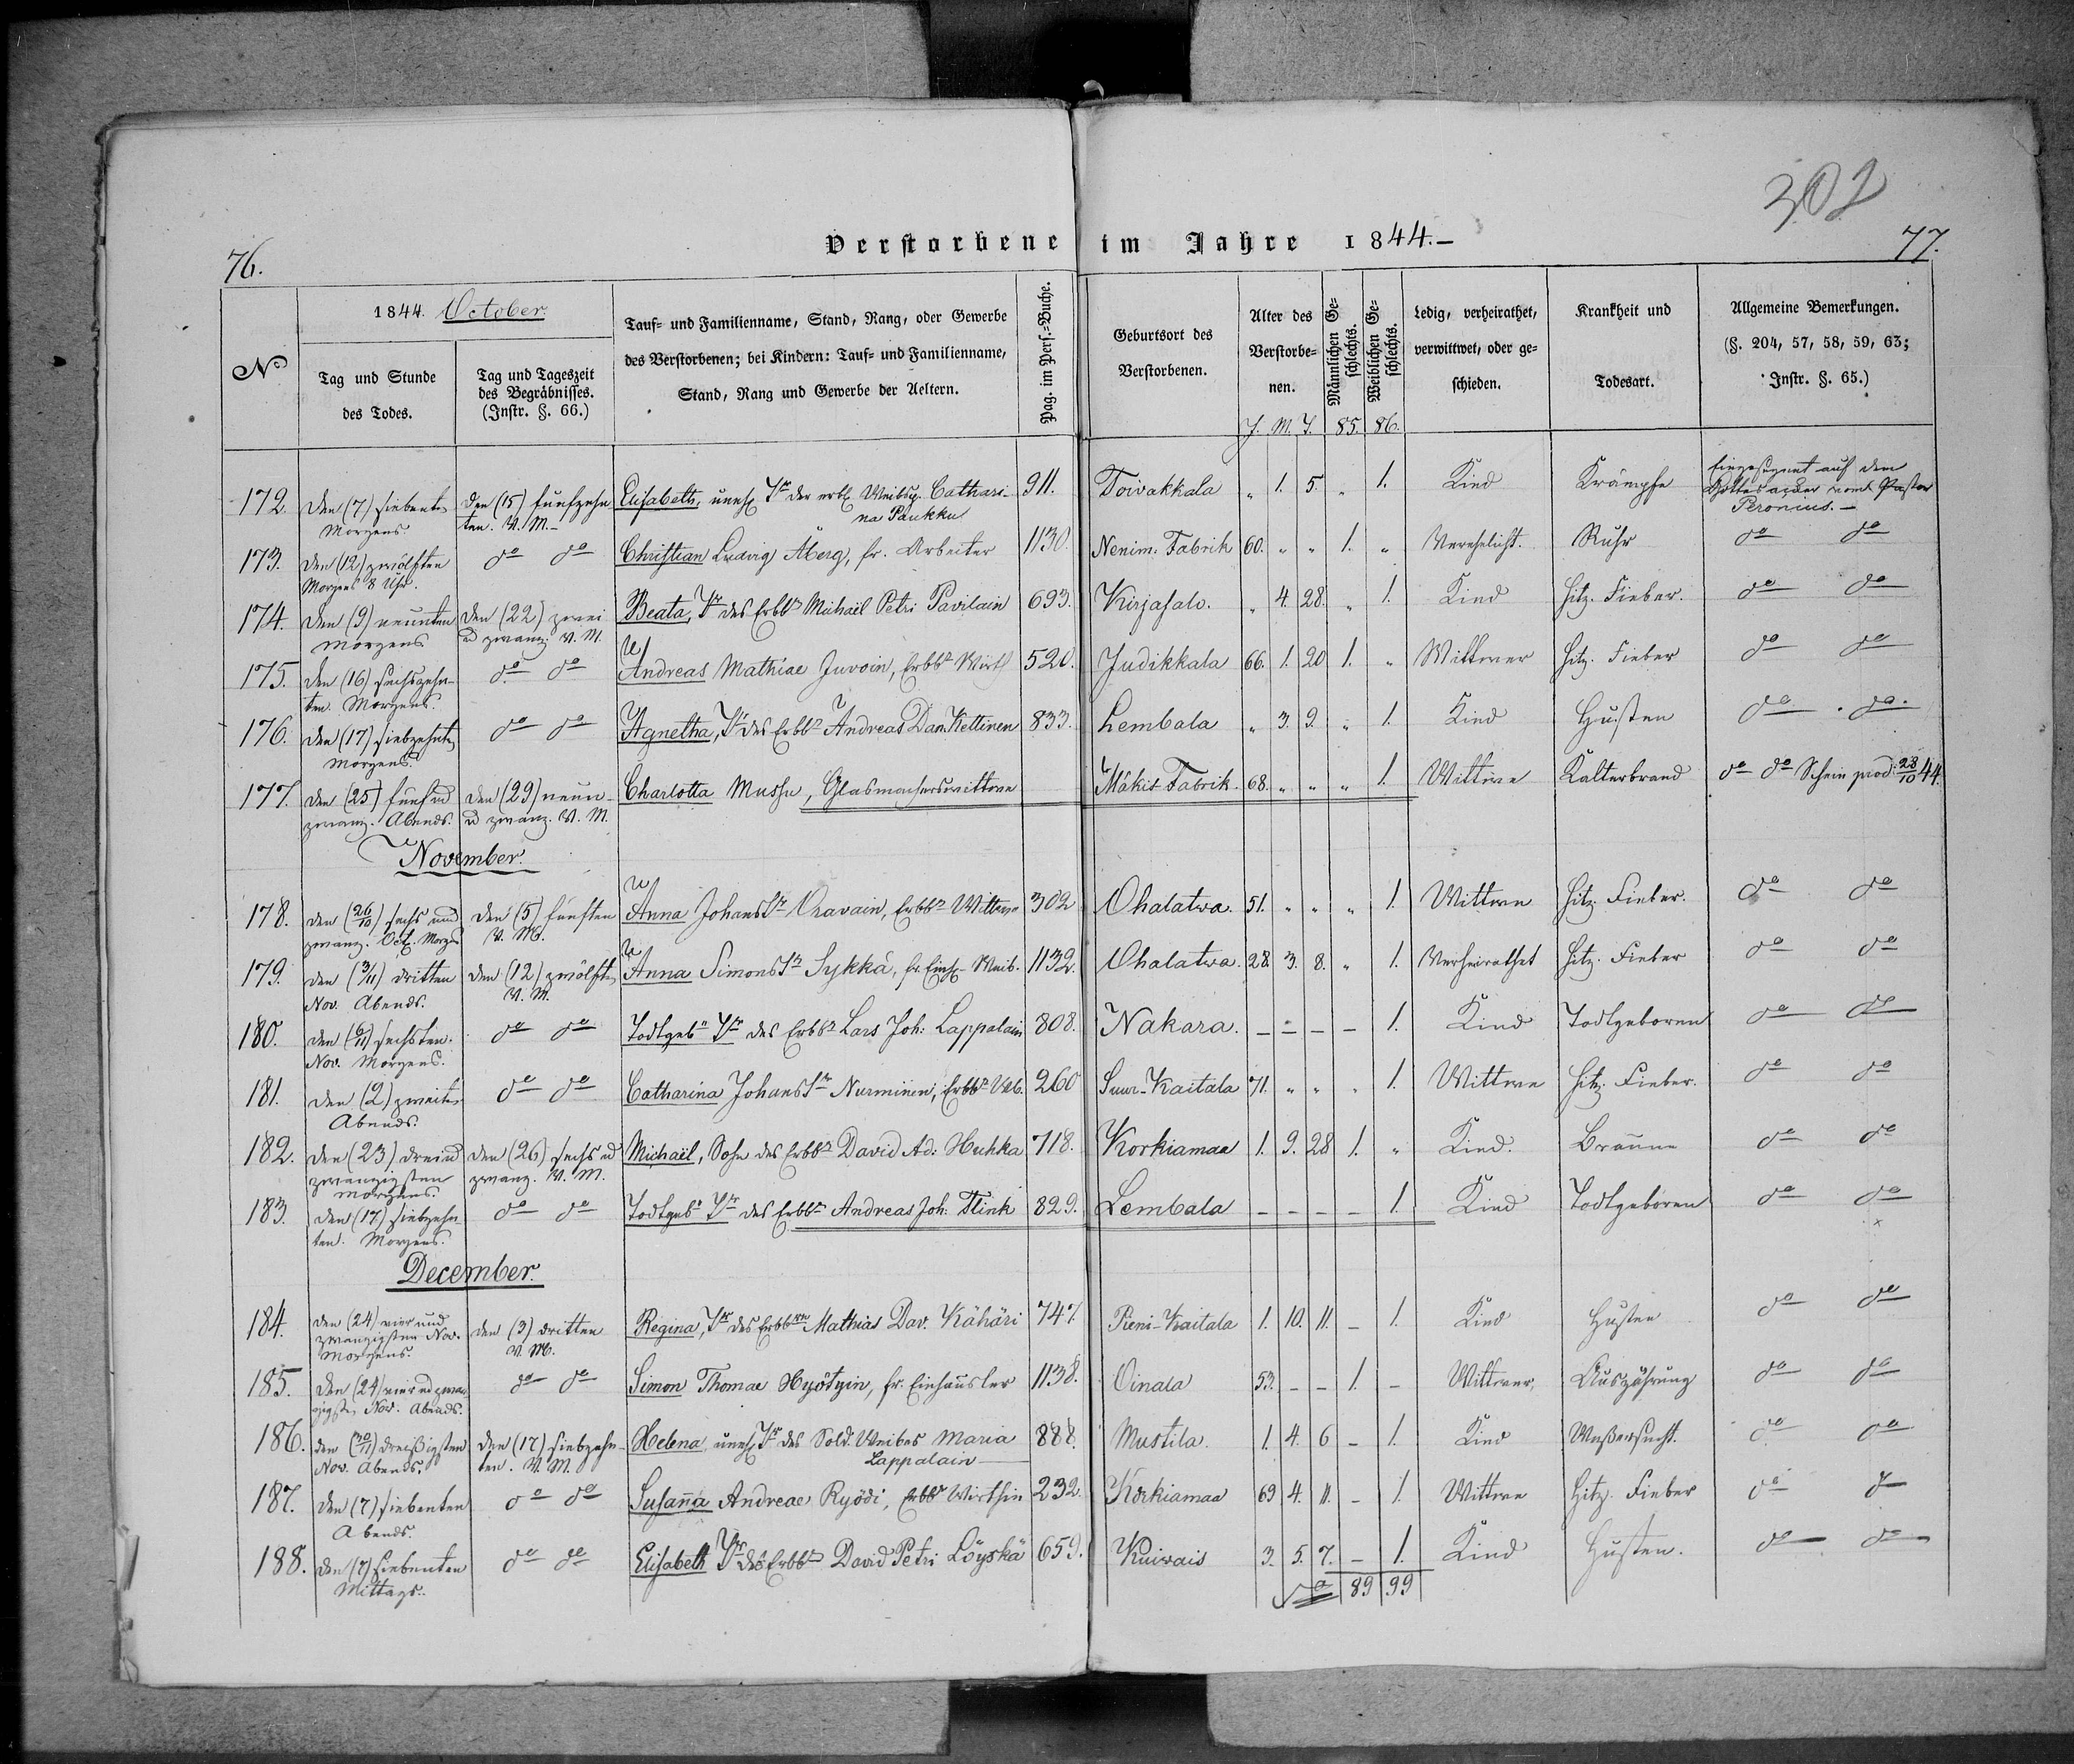 302
76.
Verstorbene im Jahre 1844.-
77.
No
1844. October.
Tag und Stunde
des Todes.
Tag und Tageszeit
des Begräbnisses.
(Instr. §. 66.)
Tauf= und Familienname, Stand, Rang, oder Gewerbe
des Verstorbenen; bei Kindern: Tauf= und Familienname,
Stand, Rang und Gewerbe der Aeltern.
Pag. im Pers.=Buche.
Geburtsort des
Verstorbenen.
Alter des
Verstorbe=
nen.
J. M. T.
Männlichen Ge=
schlechts.
85.
Weiblichen Ge=
schlechts.
86.
Ledig, verheirathet,
verwittwet, oder ge=
schieden.
Krankheit und
Todesart.
Allgemeine Bemerkungen.
(§. 204, 57, 58, 59, 63;
Instr. §. 65.)
172. den (7) siebenten den (15) fünfzehn Elisabeth, unehl Tr der erbl Catharina 911. Toivakkala " 1. 5. " 1. Kind Krämpfe Eingesegnet auf dem
Morgens. ten. V. M.- na Paukku Gottesacker vom Pastor
Peronius.-
173. den (12) zwölften do do Christian Ludvig Åberg, fr. Arbeiter 1130. Nenim. Fabrik 60. " " 1. " Verehelicht. Ruhr do do
Morgens 8 Uhr.
174. den (9) neunten den (22) zwei Beata, Tr des Erbbr Michaël Petri Pavilain 693. Kirjasalo. " 4. 28. " 1. Kind Hitz. Fieber. do do
Morgens ud zwanz. V. M.
175. den (16) sechszehn- do do Andreas Mathiae Juvoin, Erbbr Wirth 520. Judikkala 66. 1. 20 1. " Wittwer Hitz. Fieber do do
ten. Morgens.
176. den (17) siebzehnten do do Agnetha, Tr des Erbbr Andreas Dan. Kettinen 833. Lembala " 3. 9. " 1. Kind Husten do do.
Morgens.
177. den (25) fünfud den (29) neun- Charlotta Mussu, Glasmacherswittwe Mäkis Fabrik. 68. " " " 1. Wittwe Kalterbrand do do Schein prod. 28/10 44.
zwanz. Abends. ud zwanz. V. M.
November.
178. den (26/10) sechs und den (5) fünften Anna Johans Tr Oravain, Erbbr Wittwe 302 Ohalatva. 51. " " " 1. Wittwe Hitz. Fieber. do do
zwanz. Oct. Morgs V. M.
179. den (3/11) dritten den (12) zwölften Anna Simons Tr Sykkä, fr. Einh- Weib. 1132. Ohalatva. 28. 3. 8. " 1. Verheirathet Hitz. Fieber do do
Nov. Abends. V. M.
180. den (6/11) sechsten. do do Todtgebn Tr des Erbbr Lars Joh. Lappalain 808. Nakara. - - - - 1. Kind Todtgeboren do do
Nov. Morgens.
181. den (2) zweiten do do Catharina Johans Tr Nurminen, Erbbr Wb. 260 Suur-Kaitala 71. " " " 1. Wittwe Hitz. Fieber. do do
Abends.
182. den (23) dreiud den (26) sechs ud Michaël, Sohn des Erbbr David Ad. Huhka 718. Korkiamaa 1. 9. 28 1. " Kind. Bräune do do
zwanzigsten zwanz. V. M.
Morgens.
183. den (17) siebzehn- do do Todtgebn Tr des Erbbr Andreas Joh. Flink 829. Lembala - - - - 1. Kind Todtgeboren do do
ten. Morgens.
December.
184. den (24) vierund den (3) dritten Regina, Tr des Erbbrn Mathias Dav. Kähäri 747. Pieni-Kaitala 1. 10. 11. - 1. Kind Husten do do
zwanzigsten Nov. V. M.
Morgens.
185. den (24) vierud zwan do do Simon Thomae Hyötyin, fr. Einhäusler 1138. Oinala 53. - - 1. - Wittwer, Auszährung do do
zigsten Nov. Abends.
186. den (30/11) dreißigsten den (17) siebzehn- Helena, unehl Tr des Sold. Weibes Maria 888. Mustila. 1. 4. 6 - 1. Kind Waßersucht. do do
Nov. Abends. ten. V. M. Lappalain
187. den (7) siebenten do do Susanna Andreae Ryödi, Erbbr Wirthin 232. Korkiamaa 69 4. 11. - 1. Wittwe Hitz. Fieber do do
Abends.
188. den (7) siebenten do do Elisabeth Tr des Erbbr David Petri Löyskä 659. Kuivais 3. 5. 7. - 1. Kind Husten. do do
Mittags. Sa 89 99